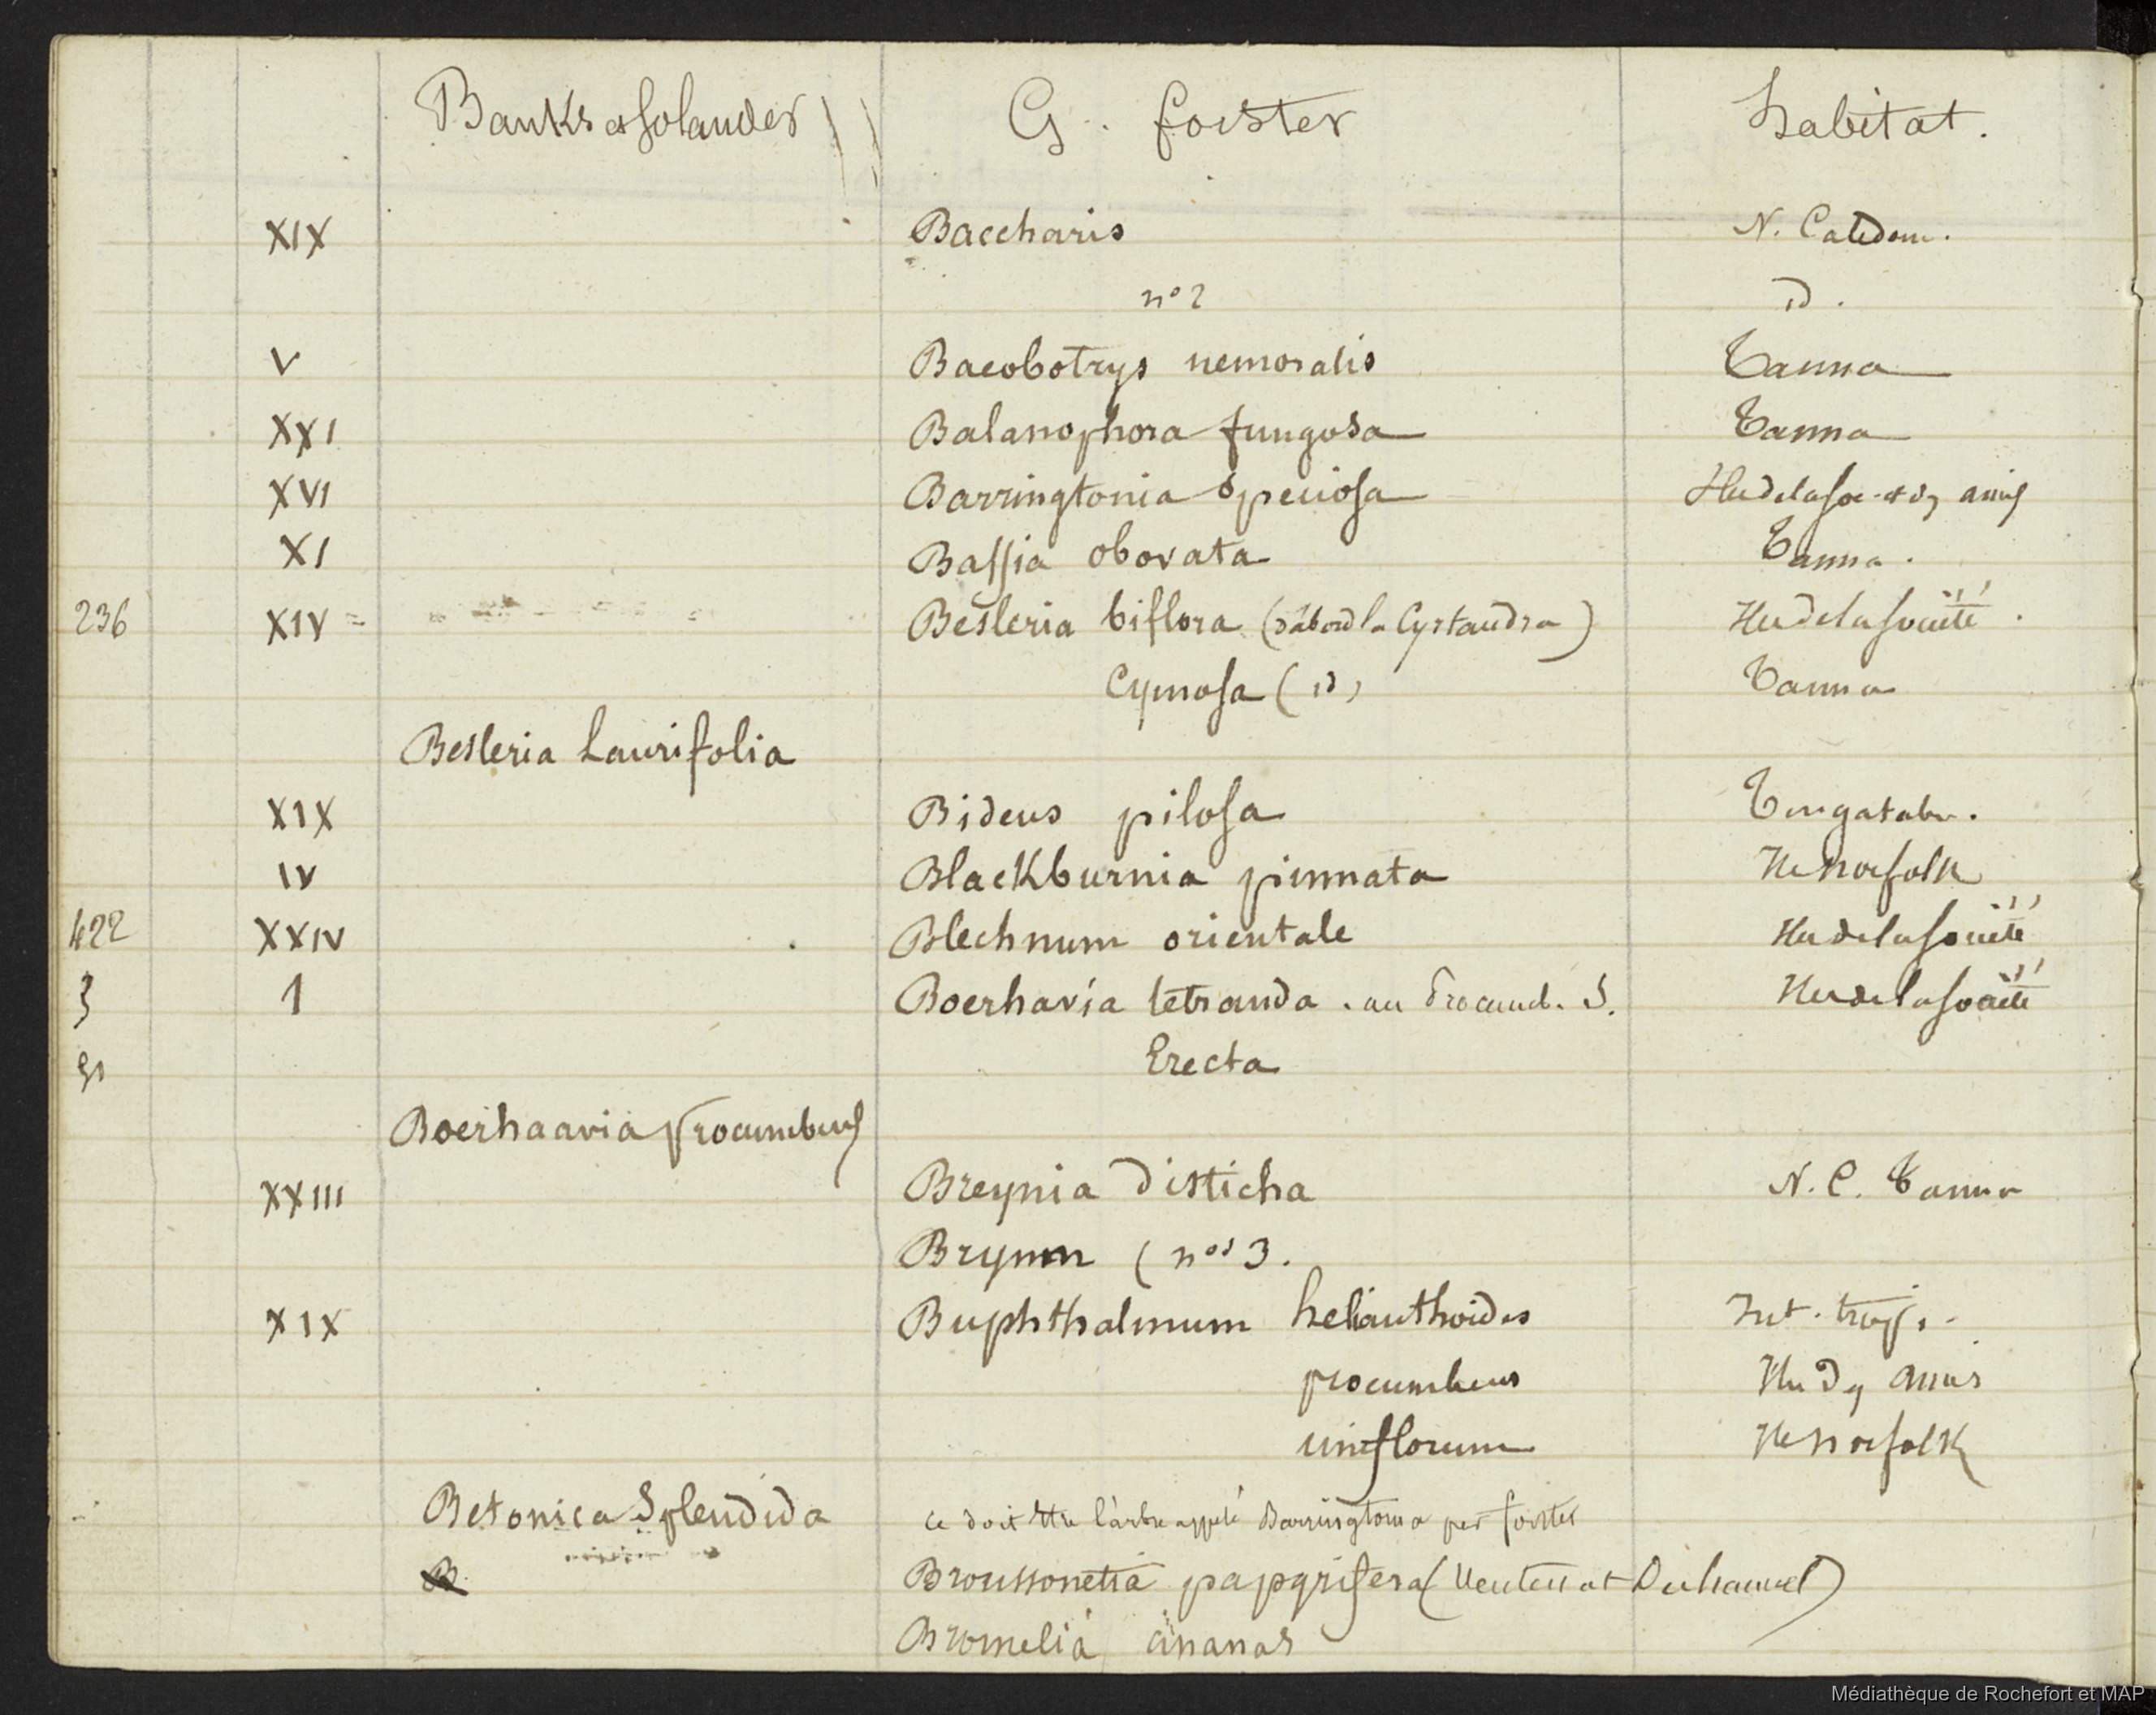 Banks et Solander G. forster habitat.
XIX Baccharis N. Caledon.
n° 2 id.
V Baeobotrys nemoralis Tanna
XXI Balanophora fungosa Tanna
XVI Barringtonia speciosa Iles de la Soc. et des amis
XI Bassia obovata Tanna.
236 XIV = Besleria biflora (d'abord la Cyrtandra) Iles de la Société.
Cymosa (id) Tanna
Besleria Laurifolia
XIX Bidens pilosa Tongatabu.
IV Blackburnia pinnata Ile Norfolk
422 XXIV Blechnum orientale Iles de la Société
3 I Boerhavia tetranda . au Procumb. S. Iles de la Société
Erecta
Boerhaavia procumbens
XXIII Breynia disticha N. C. Tanna
Bryum ( nos 3.
XIX Buphthalmum helianthoides Int. trop.
procumbens Iles des Amis
uniflorum Ile Norfolk
Betonica Splendida ce doit être l'arbre appelé Barringtonia per forster
B Broussonetia papyrifera (Ventenat Duhamel)
Bromelia ananas
Médiathèque de Rochefort et MAP